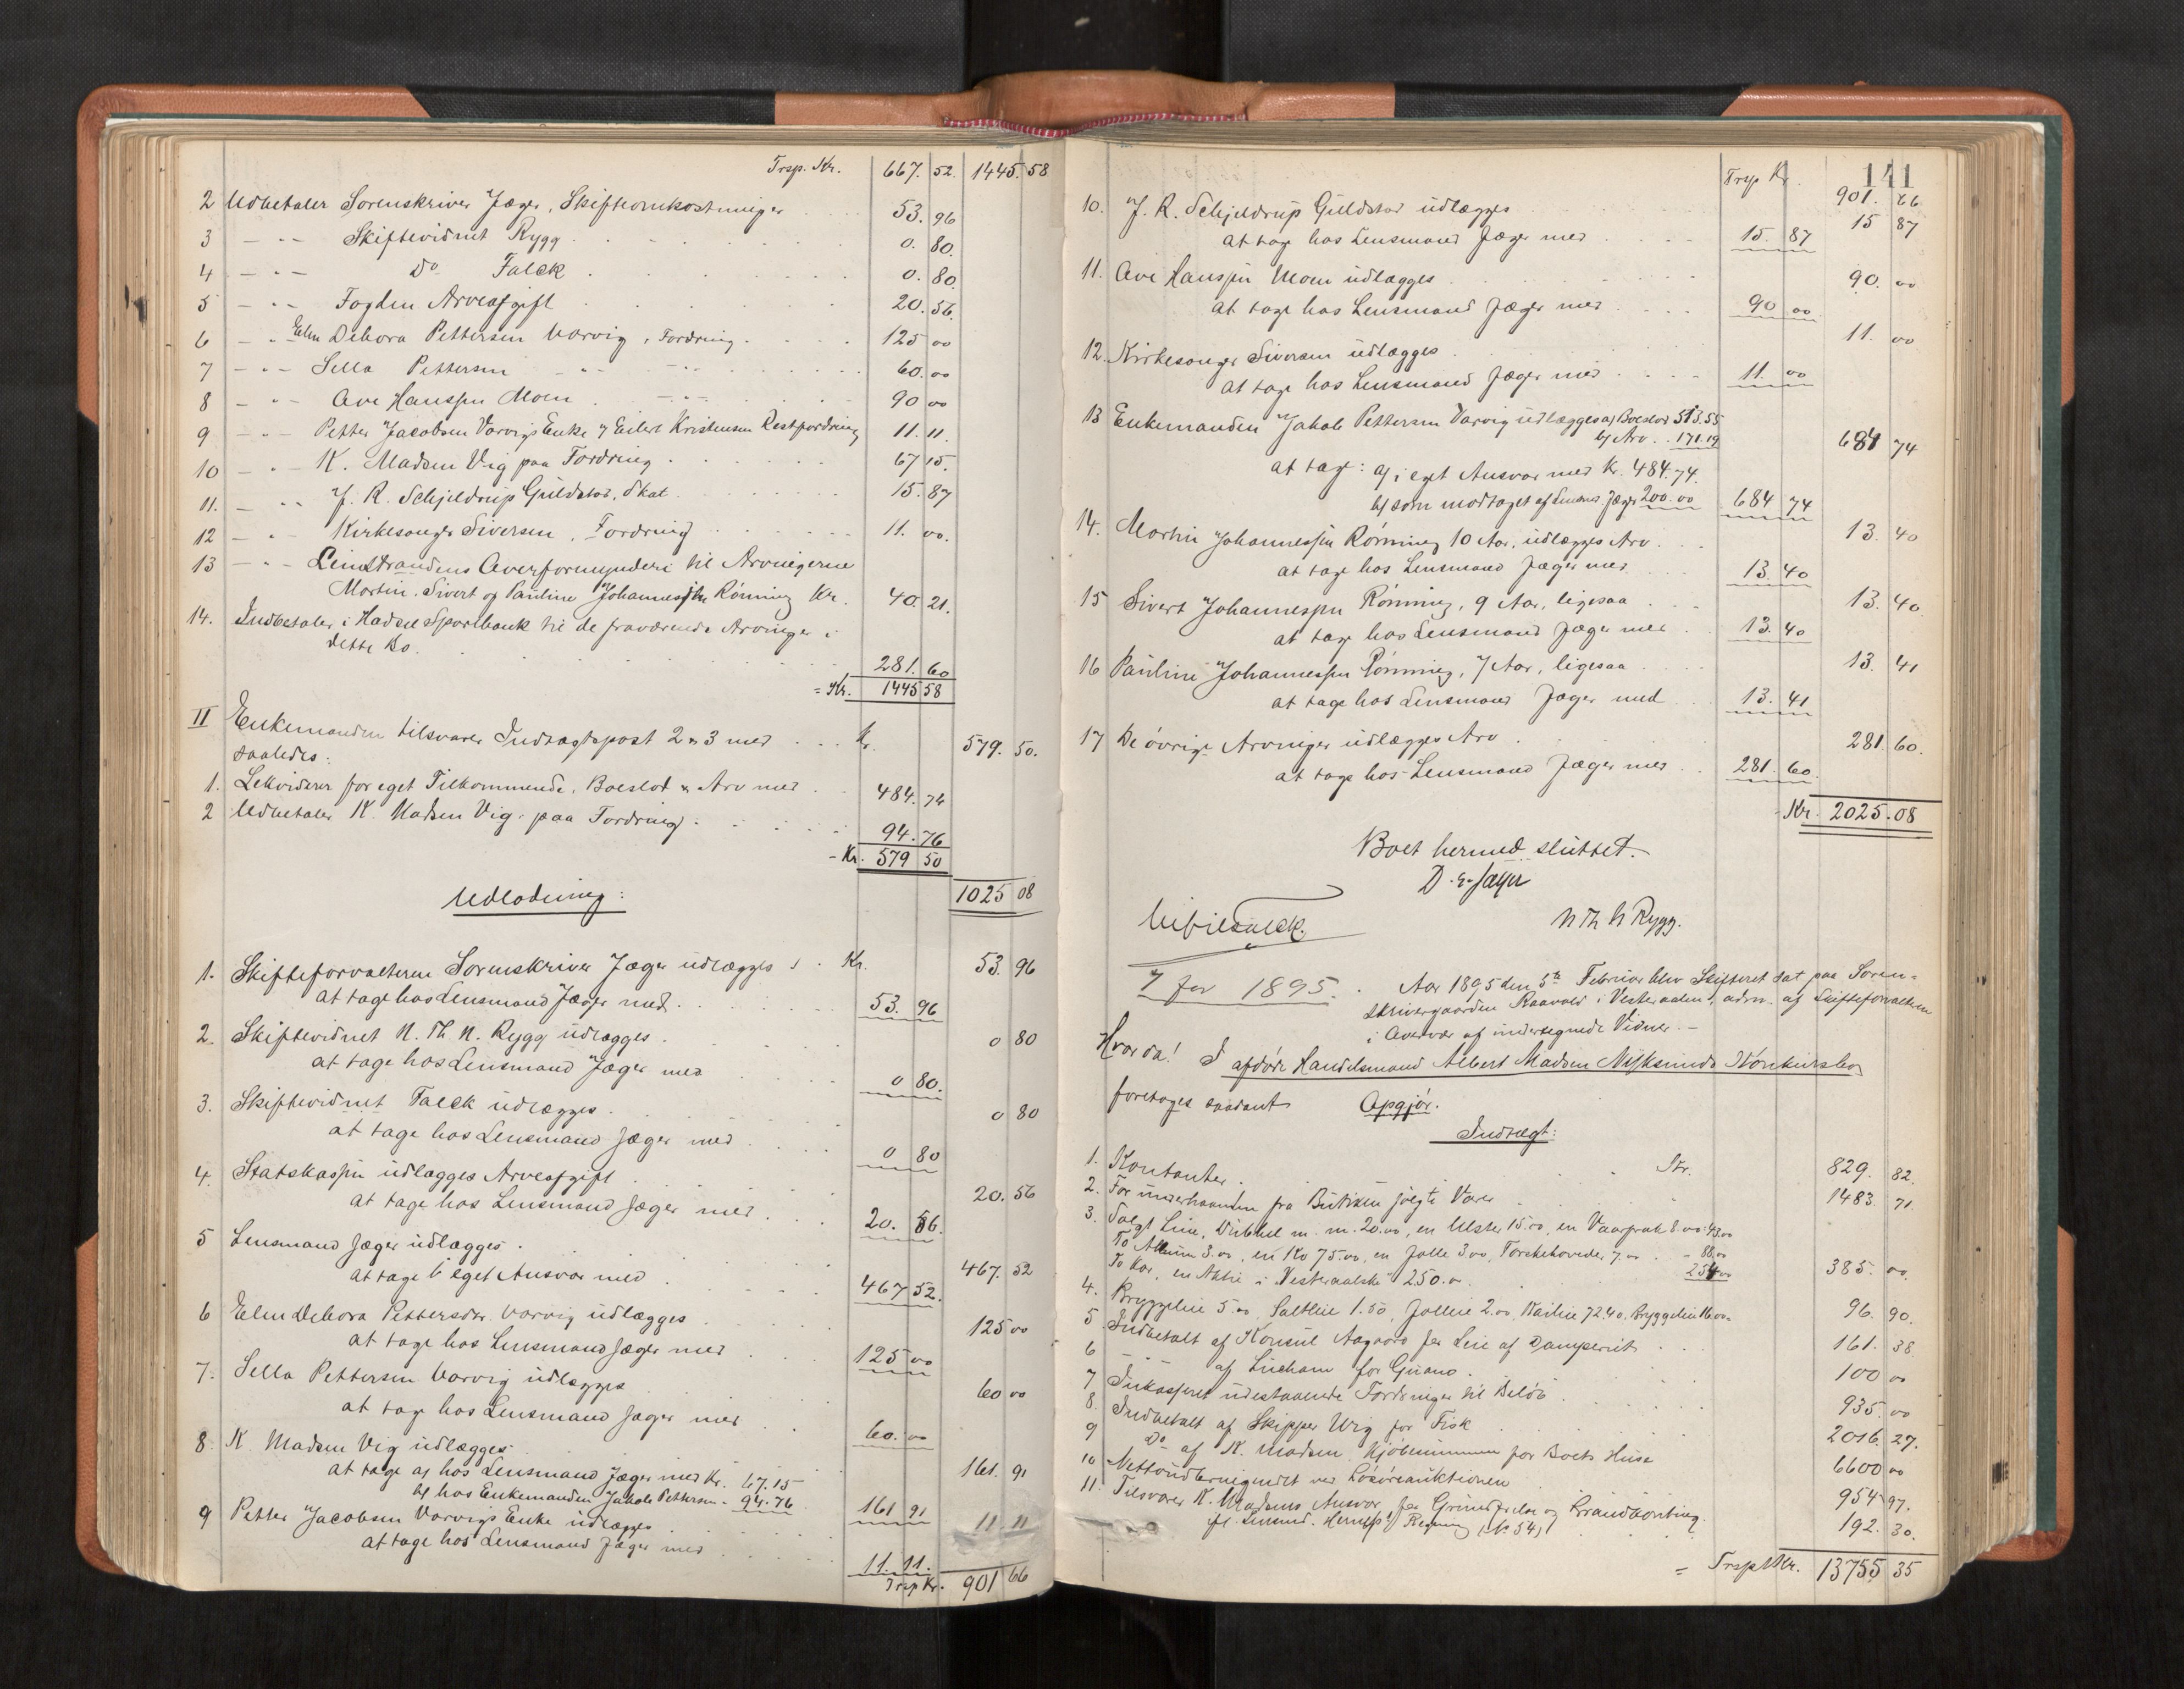 Trsp. Kr. 667. 52. 1445. 58
2 Udbetaler Sorenskriver Jæger, Skifteomkostninger 53. 96
3 - " - Skiftevidnet Rygg 0. 80.
4 - " - Do Falck 0. 80.
5 - " - Fogden Arveafgift 20. 56.
6 - " Elen Debora Pettersen Varvig, Fordring 125 00
7 - " - Sella Pettersen - " - - " - 60. 00
8 - " - Ave Hanssen Moen - " - 90 00
9 - " - Petter Jacobsen Varvigs Enke v/ Eilert Kristensen Restfordring 11. 11.
10 - " - K. Madsen Vig paa Fordring 67 15.
11. - " J. R. Schjeldrup Guldstad, Skat 15. 87
12 - " - Kirkesanger Siversen, Fordring 11. 00.
13 - " - Leinstrandens Overformynderi til Arvingerne
Martin, Sivert og Pauline Johannessen Rönning Kr. 40. 21.
14. Indbetaler i Hadsel Sparebank til de fraværende Arvinger i
dette Bo 281. 60
= Kr. 1445 58
II Enkemanden tilsvarer Indtægtspost 2 & 3 med Kr. 579. 50.
saaledes:
1. Lekviderer for eget Tilkommende, Boeslod & Arv med 484. 74
2 Udbetaler K. Madsen Vig paa Fordring 94. 76
= Kr. 579 50
1025 08
Udlodning:
1. Skifteforvalteren Sorenskriver Jæger udlægges Kr. 53. 96
at tage hos Lensmand Jæger med 53. 96
2. Skiftevidnet N. Th. N. Rygg udlægges 0 80
at tage hos Lensmand Jæger med 0 80.
3. Skiftevidnet Falck udlægges 0 80
at tage hos Lensmand Jæger med 0 80
4. Statskassen udlægges Arveafgift 20. 56
at tage hos Lensmand Jæger med 20. 56.
5 Lensmand Jæger udlægges 467. 52
at tage i eget Ansvar med 467 52.
6 Elen Debora Pettersdr. Varvig udlægges 125 00
at tage hos Lensmand Jæger med 125 00
7. Sella Pettersen Varvig udlægges 60 00
at tage hos Lensmand Jæger med 60. 00
8. K. Madsen Vig udlægges 161. 91
at tage a/ hos Lensmand Jæger med Kr. 67.15
b/ hos Enkemanden Jakob Pettersen - 94.76 161 91
9 Petter Jacobsen Varvigs Enke udlægges 11. 11
at tage hos Lensmand Jæger med 11. 11.
Trsp Kr. 901 66
141
Trsp Kr. 901. 66
10. J. R. Schjeldrup Guldstad udlægges 15 87
at tage hos Lensmand Jæger med 15. 87
11. Ave Hanssen Moen udlægges 90. 00
at tage hos Lensmand Jæger med 90 00
12. Kirkesanger Siversen udlægges 11. 00
at tage hos Lensmand Jæger med 11. 00
13 Enkemanden Jakob Pettersen Varvig udlægges a/ Boeslod 513.55
b/ Arv 171.19 684 74
at tage: a/ i eget Ansvar med Kr. 484.74.
b/ som modtaget af Lensmd Jæger 200.00 684 74
14. Martin Johannessen Rönning 10 Aar, udlægges Arv 13. 40
at tage hos Lensmand Jæger med 13. 40
15 Sivert Johannessen Rönning, 9 Aar, ligesaa 13. 40
at tage hos Lensmand Jæger med 13. 40
16 Pauline Johannessen Rönning, 7 Aar, ligesaa 13. 41
at tage hos Lensmand Jæger med 13. 41
17 De övrige Arvinger udlægges Arv 281. 60.
at tage hos Lensmand Jæger med 281. 60.
= Kr. 2025. 08
Boet hermed sluttet.
D. E. Jæger
N Th N Rygg.
7 for 1895. Aar 1895 den 5te Februar blev Skifteret sat paa Soren-
skrivergaarden Raavold i Vesteraalen, adm. af Skifteforvalteren
i Overvær af undertegnede Vidner. -
Hvor da! I afdøde Handelsmand Albert Madsen Nyksunds Konkursbo
foretoges saadant Opgjør.
Indtægt:
1. Kontanter Kr. 829. 82.
2. For underhaanden fra Butiken solgte Varer 1483 71.
3. Solgt Line, Dubbel m. m. 20.00, en Ulster 15.00, en Vaarfrak 8.00 = 43.00
To Album 3.00, en Ko 75.00, en Jolle 3.00, Torskehoveder 7.00 - 88.00
To Kar, en Aktie i "Vesteraalske" 250.00 254.00 385. 00.
4. Bryggeleie 5.00, Saltleie 1.50, Jolleie 2.00, 72.40, Bryggeleie 16.00 = 96. 90.
5 Indbetalt af Konsul Aagaard for Leie af Damperiet 161. 38
6 - " - af for Guano 100 00
7 Inkasseret udestaaende Fordringer til Beløb 935. 00
8. Indbetalt af Skipper Wig for Fisk 2016. 27.
9 Do af K. Madsen Kjøbesummen for Boets Huse 6600 00
10 Nettoudbringendet ved Lösöreauktionen 954 97.
11. Tilsvarer K. Madsens Ansvar for Grundfrelse og Brandkonting.
fl. Lensmd. Regning (No 54) 192. 30.
= Trsp Kr. 13755 35